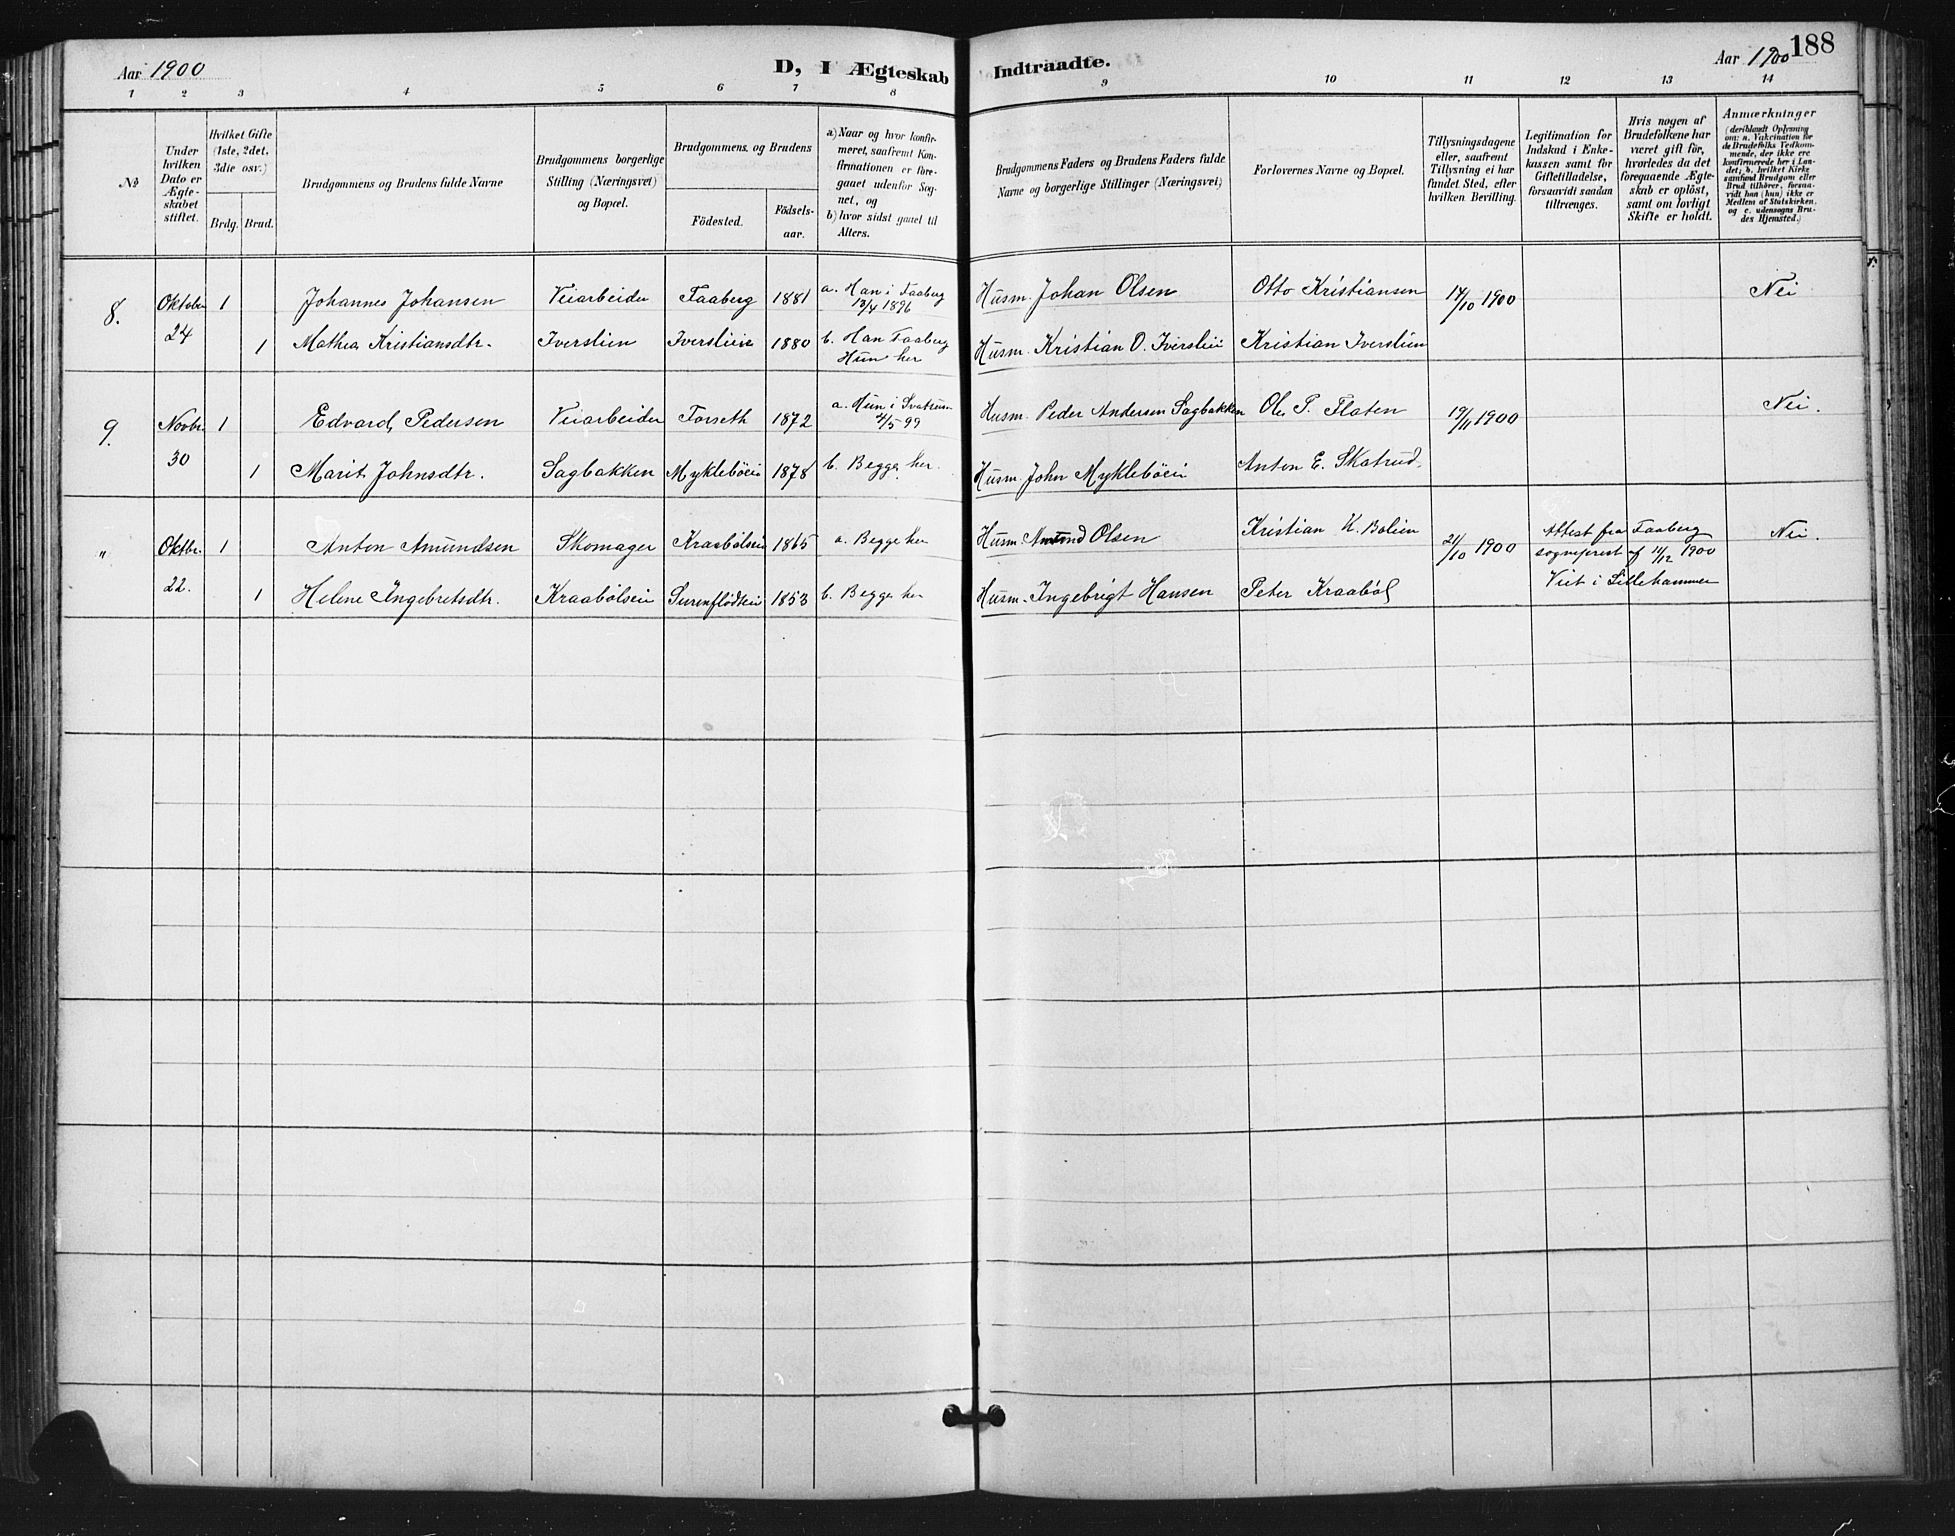 Aar 1900
D, I Ægteskab Indtraadte.
Aar 1900
188
1 2 3 4 5 6 7 8 9 10 11 12 13 14
№
Under hvilken Dato er Ægteskabet stiftet.
Hvilket Gifte (1ste, 2det, 3die osv.)
Brdg. Brud.
Brudgommens og Brudens fulde Navne
Brudgommens borgerlige Stilling (Næringsvei) og Bopæl.
Brudgommens og Brudens
Födested.
Födsels-aar.
a) Naar og hvor konfirmeret, saafremt Konfirmationen er foregaaet udenfor Sognet, og
b) hvor sidst gaaet til Alters.
Brudgommens Faders og Brudens Faders fulde Navne og borgerlige Stillinger (Næringsvei)
Forlovernes Navne og Bopæl.
Tillysningsdagene eller, saafremt Tillysning ei har fundet Sted, efter hvilken Bevilling.
Legitimation for Indskud i Enkekassen samt for Giftetilladelse, forsaavidt saadan tiltrænges.
Hvis nogen af Brudefolkene har været gift før, hvorledes da det foregaaende Ægteskab er oplöst, samt om lovligt Skifte er holdt.
Anmærkninger
(deriblandt Oplysning om: a. Vakcination for de Brudefolks Vedkommende, der ikke ere konfirmerede her i Landet; b. hvilket Kirkesamfund Brudgom eller Brud tilhörer, forsaavidt han (hun) ikke er Medlem af Statskirken, og c. udensogns Brudes Hjemsted.)
8. Oktober 1 Johannes Johansen Veiarbeider Faaberg 1881 a. Han i Faaberg 13/4 1896 Husm. Johan Olsen Otto Kristiansen 14/10 1900 Nei
24 1 Mathea Kristiansdtr. Iverslien Iverslien 1880 b. Han Faaberg Hun her Husm. Kristian O. Iverslien Kristian Iverslien
9. Novbr. 1 Edvard Pedersen Veiarbeider Forseth 1872 a. Hun i Svatsum 4/5 99 Husm. Peder Andersen Sagbakken Ole P. Flaten 19/11 1900 Nei.
30 1 Marit Johnsdtr. Sagbakken Myklebøeie 1878 b. Begge her. Husm. John Myklebøeii Anton E. Skatrud.
" Oktbr. 1 Anton Amundsen Skomager Kraabølseie 1865 a. Begge her Husm. Amund Olsen Kristian K. Bølien 21/10 1900 Attest fra Faaberg sogneprest af 11/12 1900 Nei.
22. 1 Helene Ingebretsdtr. Kraabølseie 1853 b. Begge her Husm. Ingebrigt Hansen Peter Kraabøl Viet i Lillehammer